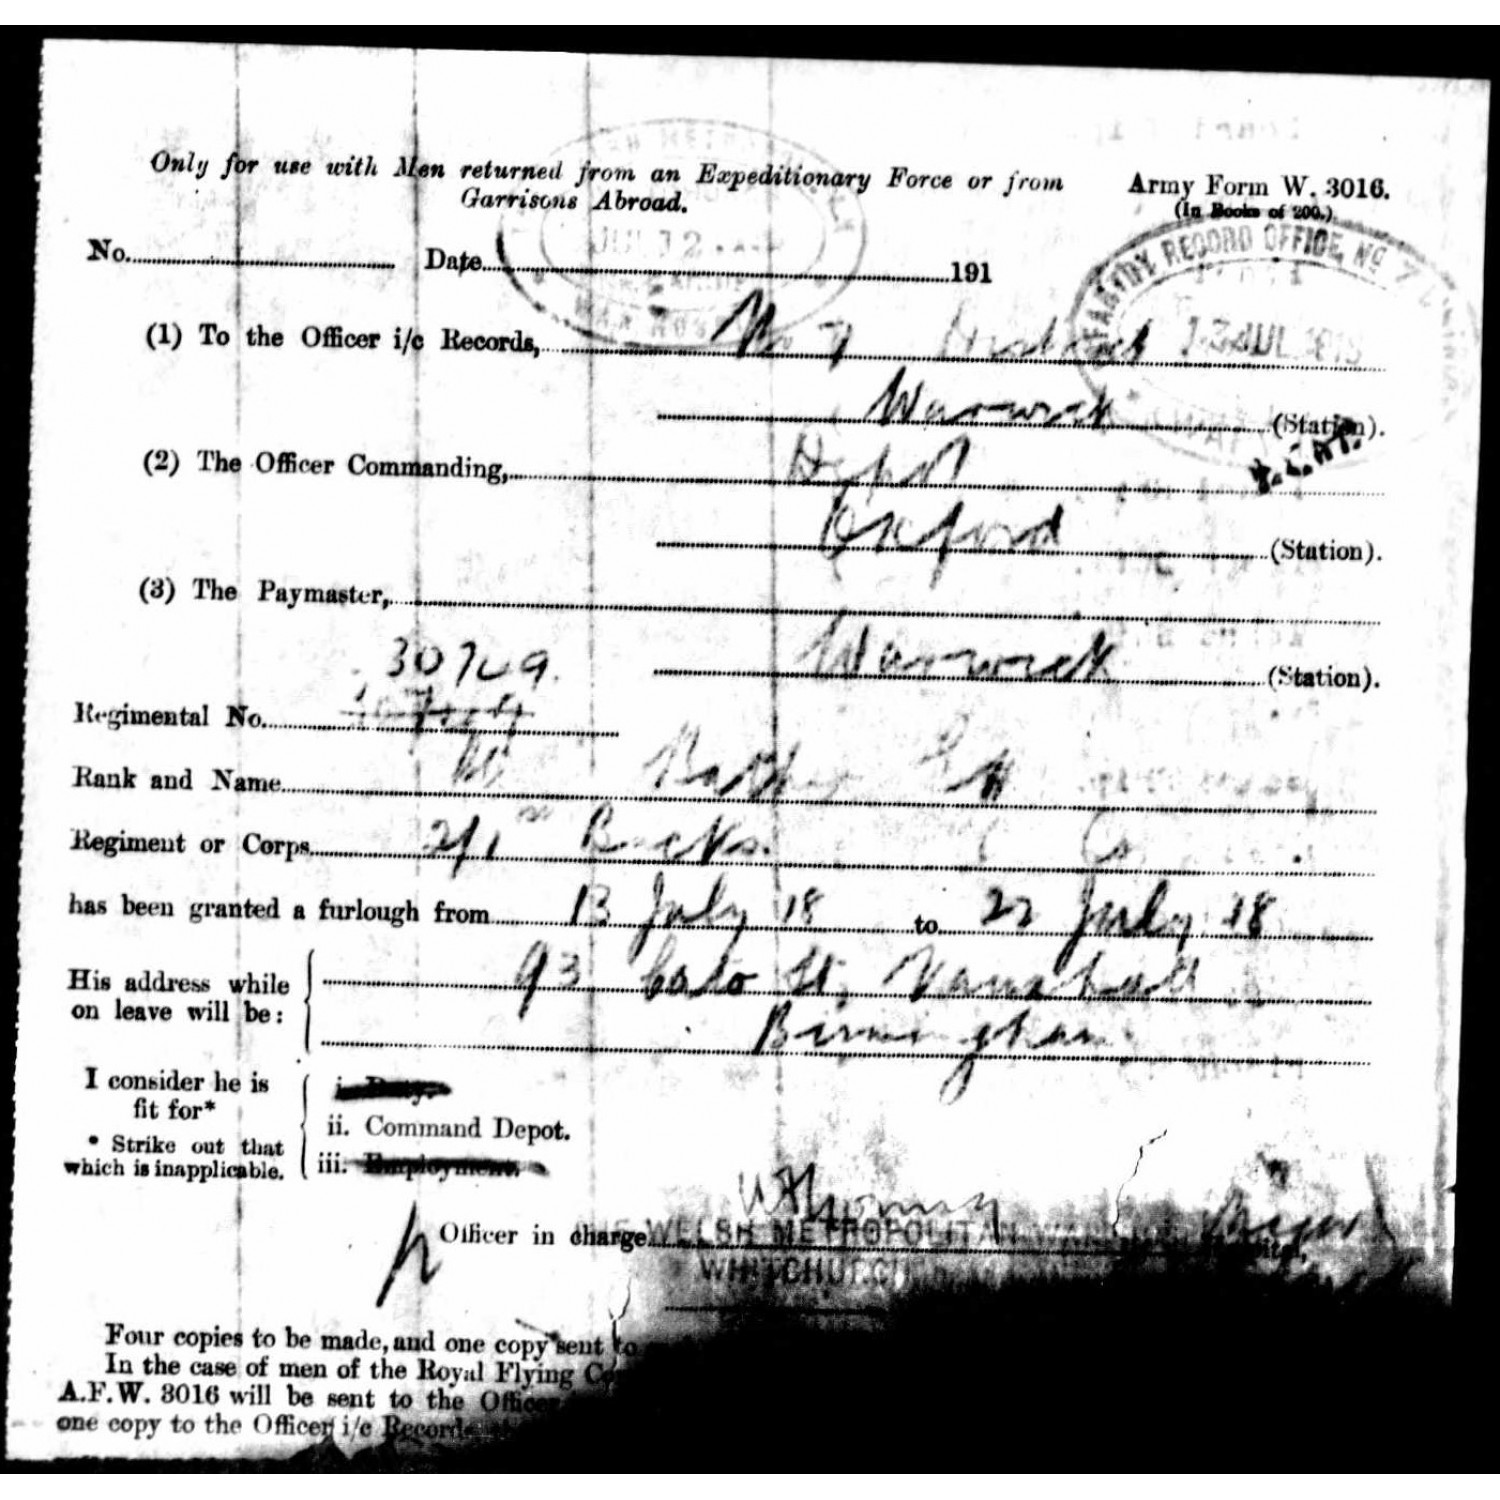 Only for use with Men returned from an Expeditionary Force or from
Garrisons Abroad.
Army Form W. 3016.
(In Books of 200.)
No. Date 191
INFANTRY RECORD OFFICE, No 7
13 JUL 1918
(1) To the Officer i/c Records, No 7 District
Warwick (Station).
(2) The Officer Commanding, Depot
Oxford (Station).
(3) The Paymaster,
Warwick (Station).
30749.
Regimental No.
Rank and Name
Regiment or Corps 2/1 Bucks.
has been granted a furlough from 13 July 18 to 22 July 18
His address while on leave will be: 93 Cato St, Vauxhall
Birmingham
I consider he is
fit for*
* Strike out that
which is inapplicable.
ii. Command Depot.
iii. Employment.
Officer in charge WELSH METROPOLITAN WAR Hospital,
WHITCHURCH
Four copies to be made, and one copy sent to
In the case of men of the Royal Flying
A.F.W. 3016 will be sent to the Officer
one copy to the Officer i/c Records